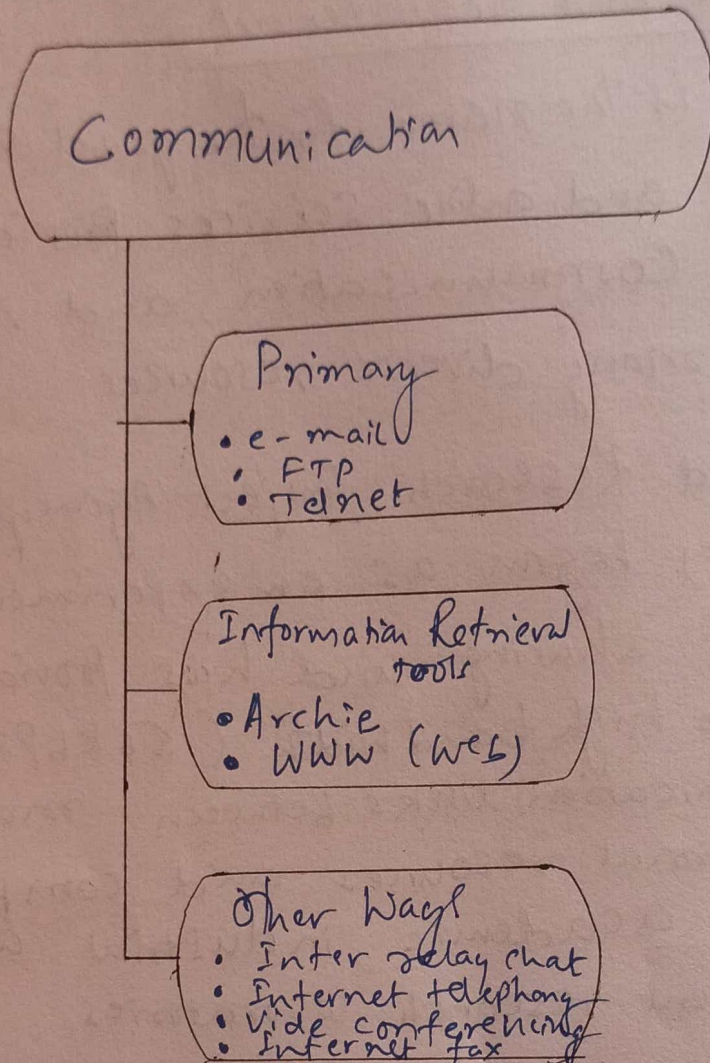 Communication
Primary
• e-mail
• FTP
• Telnet
Information Retrieval
tools
• Archie
• WWW (Web)
Other Ways
• Inter relay chat
• Internet telephony
• Vide conferencing
• Internet fax